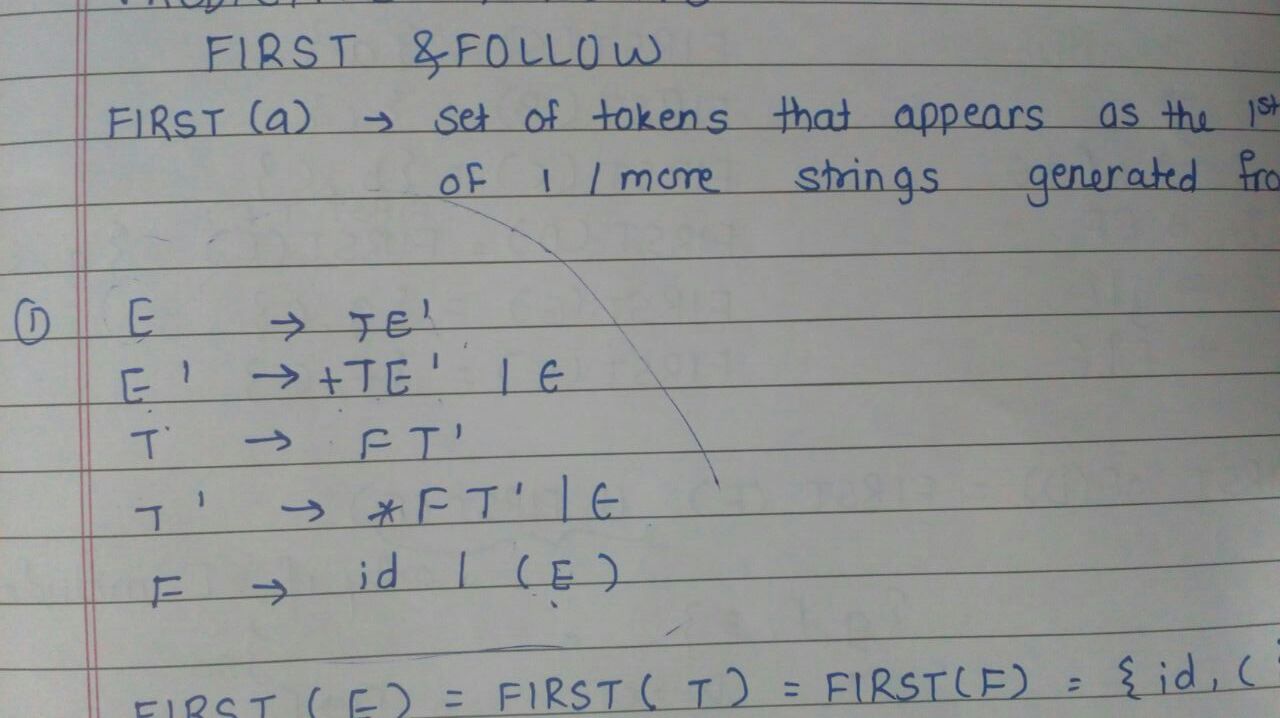 FIRST & FOLLOW
FIRST (a) → set of tokens that appears as the 1st
of 1 / more strings generated fro
① E → TE'
E' → +TE' | ϵ
T → FT'
T' → *FT' | ϵ
F → id | (E)
FIRST (E) = FIRST( T) = FIRST(F) = {id, (